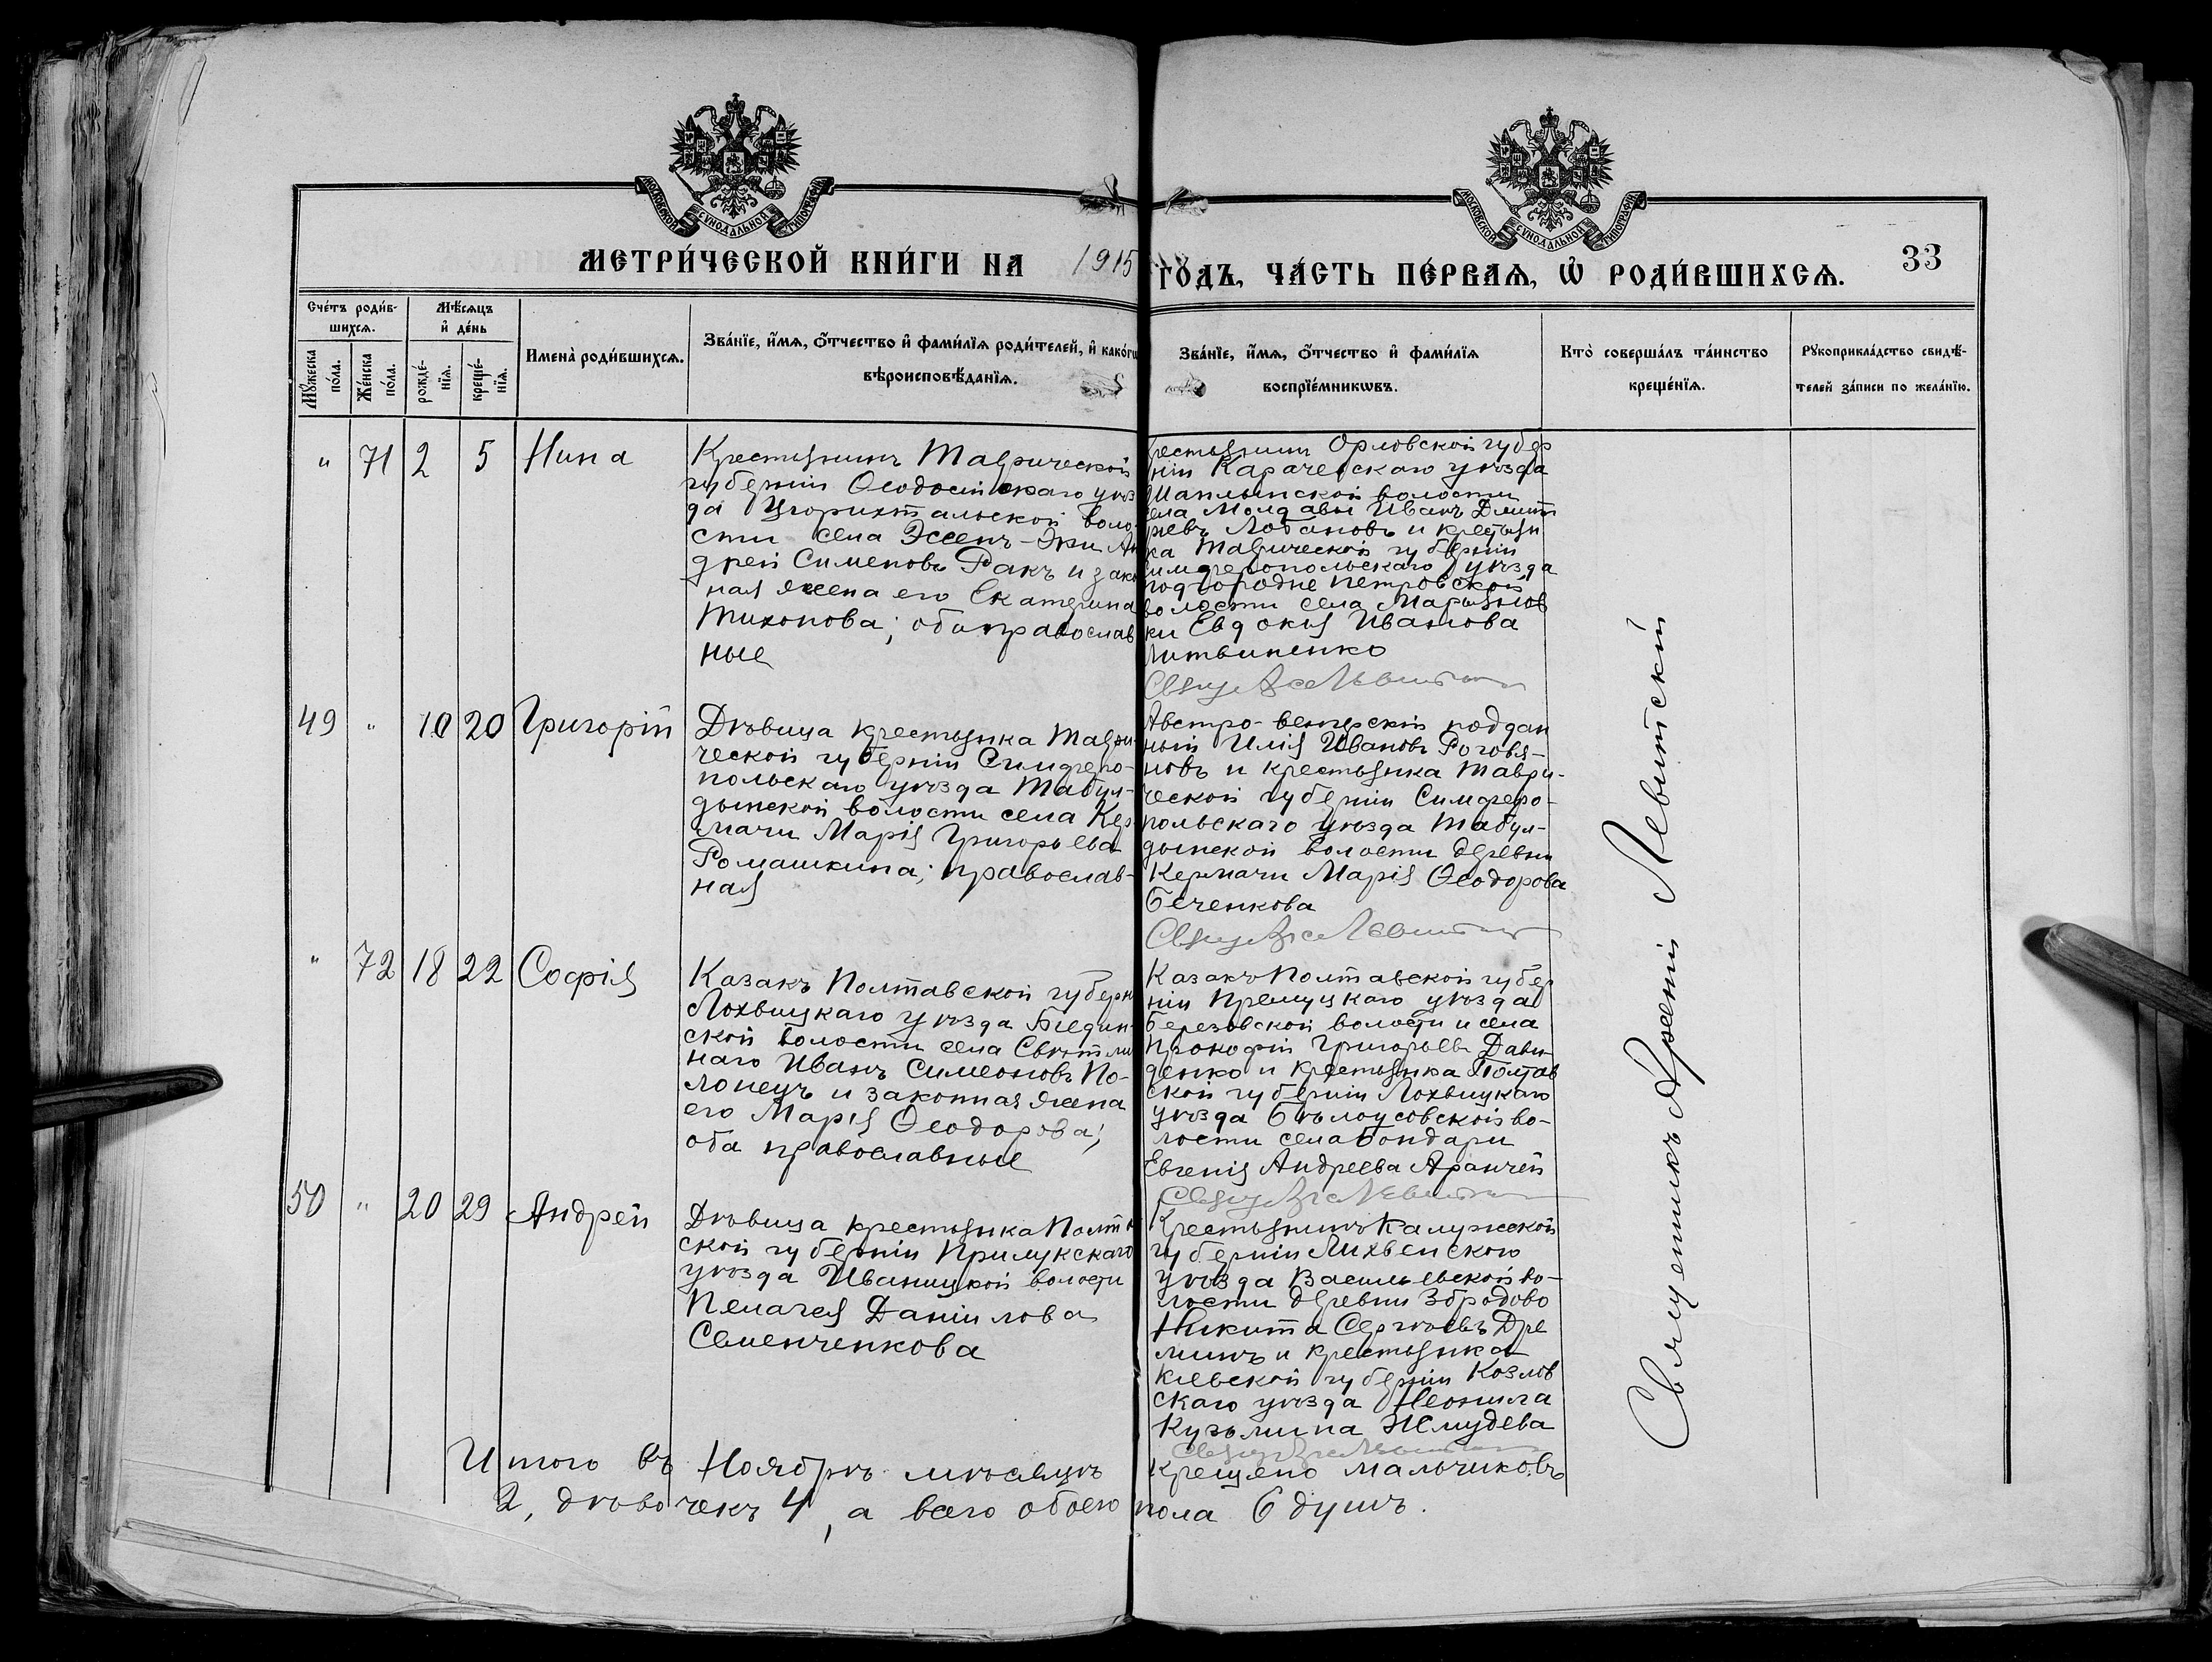 МЕТРИ́ЧЕСКОЙ КНИ́ГИ НА 1915 ГО́ДЪ, ЧА́СТЬ ПЕ́РВАЯ, Ѿ РОДИ́ВШИХСЯ.
33
МОСКОВСКОЙ СѴНОДАЛЬНОЙ ТИПОГРАФІИ
МОСКОВСКОЙ СѴНОДАЛЬНОЙ ТИПОГРАФІИ
Сче́тъ роди́в-
шихся.
Мꙋ́жеска
по́ла.
Же́нска
по́ла.
Мѣ́сяцъ
и҆ де́нь
рожде́-
нїя.
креще́-
нїя.
Имена̀ роди́вшихся.
Зва́нїе, и҆́мя, ѻ҆́тчество и҆ фами́лїя роди́телей, и҆ како́гѡ
вѣроисповѣ́данїя.
Зва́нїе, и҆́мя, ѻ҆́тчество и҆ фами́лїя
воспрїе́мникѡвъ.
Кто̀ соверша́лъ та́инство
креще́нїя.
Рꙋкоприкла́дство свидѣ́-
телей за́писи по жела́нїю.
" 71 2 5 Нина
Крестьянинъ Таврической
губерніи Ѳеодосійскаго уѣз
да Цюрихтальской воло-
сти села Эссенъ-Эки Ан
дрей Симеоновъ Ракъ и закон
ная жена его Екатерина
Тихонова; оба православ
ные
крестьянин Орловской губер
ніи Карачевскаго уѣзда
волости
села Молдавы Иванъ Дмит
ріевъ Лобановъ и крестьян
ка Таврической губерніи
Симферопольскаго уѣзда
Подгородне Петровской
волости села Марьянов
ки Евдокія Иванова
Литвиненко
49 " 10 20 Григорій
Дѣвица крестьянка Таври-
ческой губерніи Симферо-
польскаго уѣзда Табул-
дынской волости села Кер
мачи Марія Григорьева
Ромашкина; православ-
ная
Австро-венгерскій поддан
ный Илія Ивановъ Роговя-
новъ и крестьянка Таври-
ческой губерніи Симферо-
польскаго уѣзда Табул-
дынской волости деревни
Кермачи Марія Ѳеодорова
Беченкова
" 72 18 22 Софія
Казакъ Полтавской губерн
Лохвицкаго уѣзда
ской волости села
наго Иванъ Симеоновъ По-
лонецъ и законная жена
его Марія Ѳеодорова;
оба православные
Казакъ Полтавской губер
ніи уѣзда
Березовской волости и села
Прокофій Григорьевъ Дави
денко и крестьянка Полтав
ской губерніи Лохвицкаго
уѣзда Бѣлоусовской во-
лости села Бондари
Евгенія Андреева
50 " 20 29 Андрей
Дѣвица крестьянка Полтав
ской губерніи Прилукскаго
уѣзда Иваницкой волости
Пелагея Даніилова
Семенченкова
Крестьянинъ Калужской
губерніи Лихвенскаго
уѣзда Васильевской во-
лости деревни Збродово
Никита Сергѣевъ Дре
минъ и крестьянка
Кіевской губерніи Козлов
скаго уѣзда Неонила
Кузьмина Жмудева
Священникъ Арсеній Левитскій
Итого въ Ноябрѣ мѣсяцѣ крещено мальчиковъ
2, дѣвочекъ 4, а всего обоего пола 6 душъ.